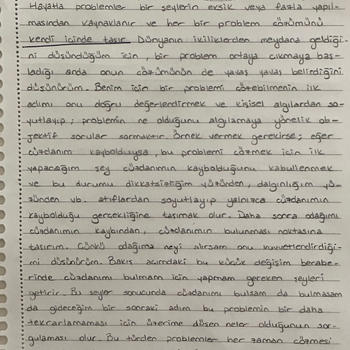 Hayatta problemler bir şeylerin eksik veya fazla yapıl-
masından kaynaklanır ve her bir problem çözümünü
kendi içinde taşır. Dünyanın ikiliklerden meydana geldiği-
ni düşündüğüm için bir problem ortaya çıkmaya baş-
ladığı anda onun çözümünün de yavaş yavaş belirdiğini
düşünürüm. Benim için bir problemi çözebilmenin ilk
adımı onu doğru değerlendirmek ve kişisel algılardan so-
yutlayıp; problemin ne olduğunu algılamaya yönelik ob-
jektif sorular sormaktır. Örnek vermek gerekirse; eğer
cüzdanım kaybolduysa, bu problemi çözmek için ilk
yapacağım şey cüzdanımın kaybolduğunu kabullenmek
ve bu durumu dikkatsizliğim yüzünden, dalgınlığım yü-
zünden vb. atıflardan soyutlayıp yalnızca cüzdanımın
kaybolduğu gerçekliğine taşımak olur. Daha sonra odağımı
cüzdanımın kaybından, cüzdanımın bulunması noktasına
taşırım. Çünkü odağıma neyi alırsam onu kuvvetlendirdiği-
mi düşünürüm. Bakış açımdaki bu küçük değişim berabe-
rinde cüzdanımı bulmam için yapmam gereken şeyleri
getirir. Bu şeyler sonucunda cüzdanımı bulsam da bulmasam
da gideceğim bir sonraki adım bu problemin bir daha
tekrarlamaması için üzerime düşen neler olduğunun sor-
gulaması olur. Bu türden problemler her zaman çözmesi